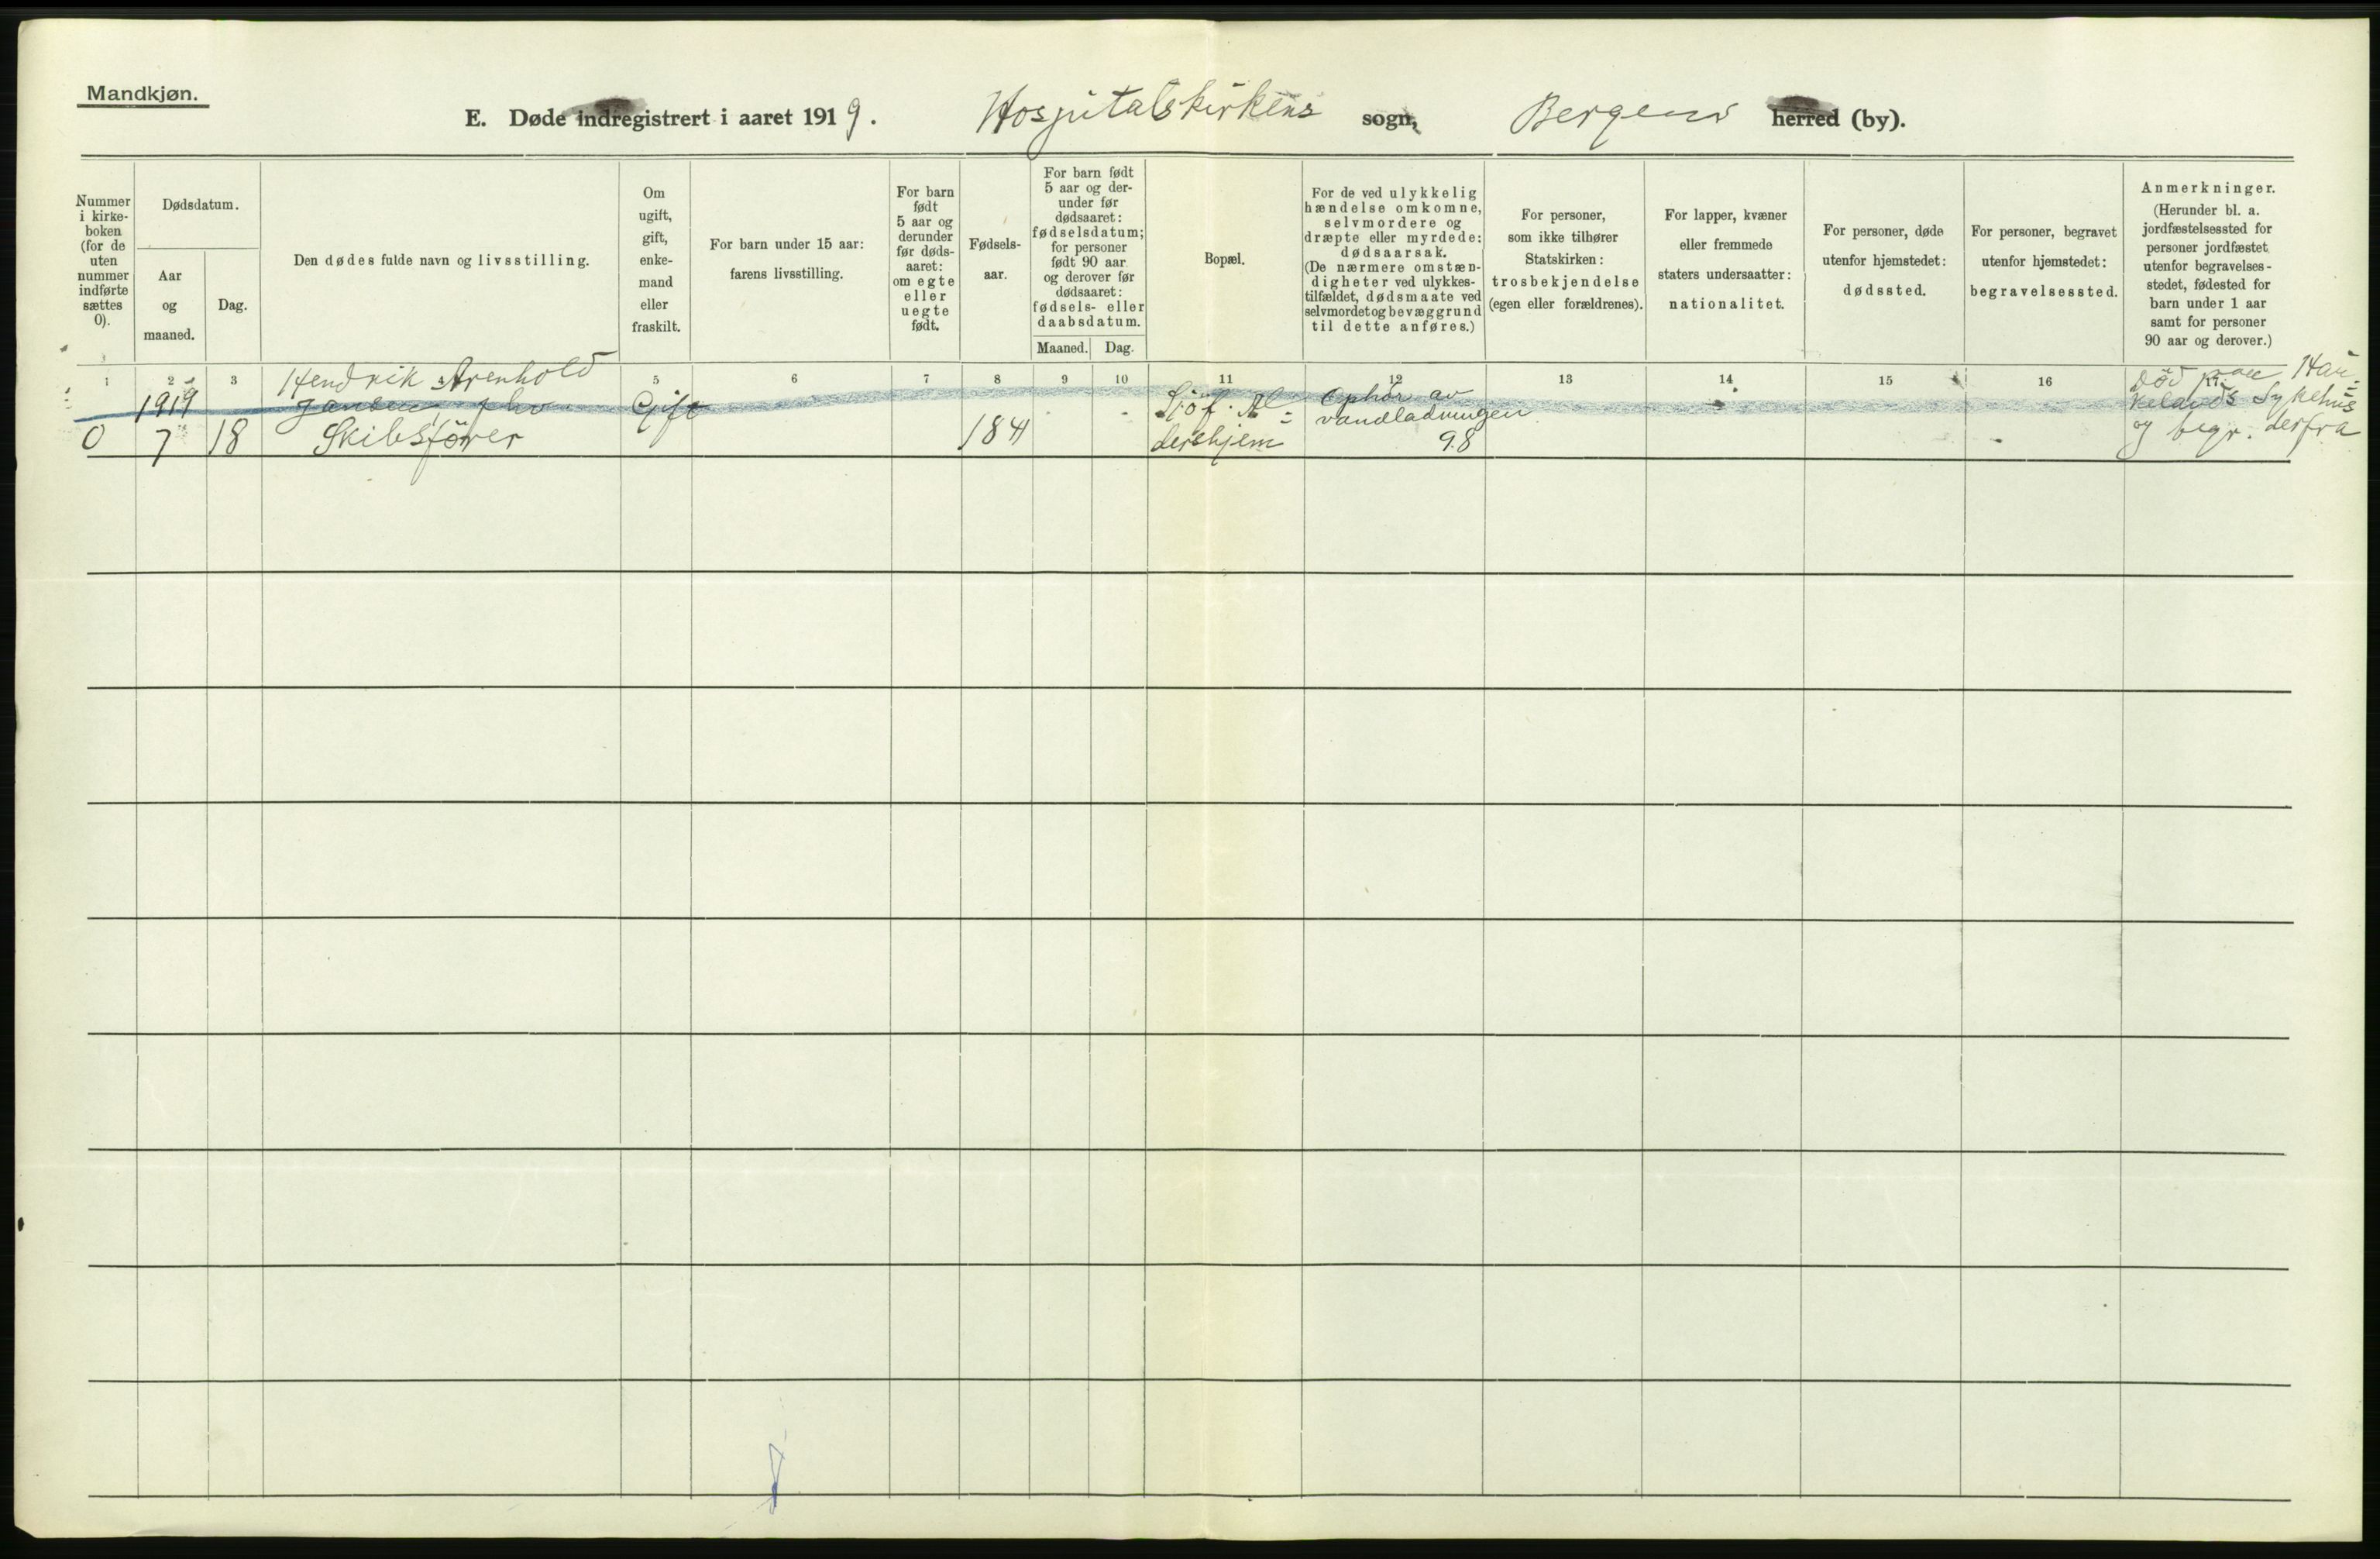 Mandkjøn.
E. Døde indregistrert i aaret 1919. Hospitalskirkens sogn, Bergens herred (by).
Nummer
i kirke-
boken
(for de
uten
nummer
indførte
sættes
0).
Dødsdatum.
Aar
og
maaned.
Dag.
Den dødes fulde navn og livsstilling.
Om
ugift,
gift,
enke-
mand
eller
fraskilt.
For barn under 15 aar:
farens livsstilling.
For barn
født
5 aar og
derunder
før døds-
aaret:
om egte
eller
uegte
født.
Fødsels-
aar.
For barn født
5 aar og der-
under før
dødsaaret:
fødselsdatum;
for personer
født 90 aar
og derover før
dødsaaret:
fødsels- eller
daabsdatum.
Maaned. Dag.
Bopæl.
For de ved ulykkelig
hændelse omkomne,
selvmordere og
dræpte eller myrdede:
dødsaarsak.
(De nærmere omstæn-
digheter ved ulykkes-
tilfældet, dødsmaate ved
selvmordet og bevæggrund
til dette anføres.)
For personer,
som ikke tilhører
Statskirken:
trosbekjendelse
(egen eller forældrenes).
For lapper, kvæner
eller fremmede
staters undersaatter:
nationalitet.
For personer, døde
utenfor hjemstedet:
dødssted.
For personer, begravet
utenfor hjemstedet:
begravelsessted.
Anmerkninger.
(Herunder bl. a.
jordfæstelsessted for
personer jordfæstet
utenfor begravelses-
stedet, fødested for
barn under 1 aar
samt for personer
90 aar og derover.)
1 2 3 4 5 6 7 8 9 10 11 12 13 14 15 16 17
0
1919
7
18
Hendrik Arenhold
Jansen, fhv.
Skibsfører
Gift
184
Sjöf. Al=
dershjem
Ophör av
vandladningen
98
Död paa Hau=
kelands Sykehus
og begr. derfra